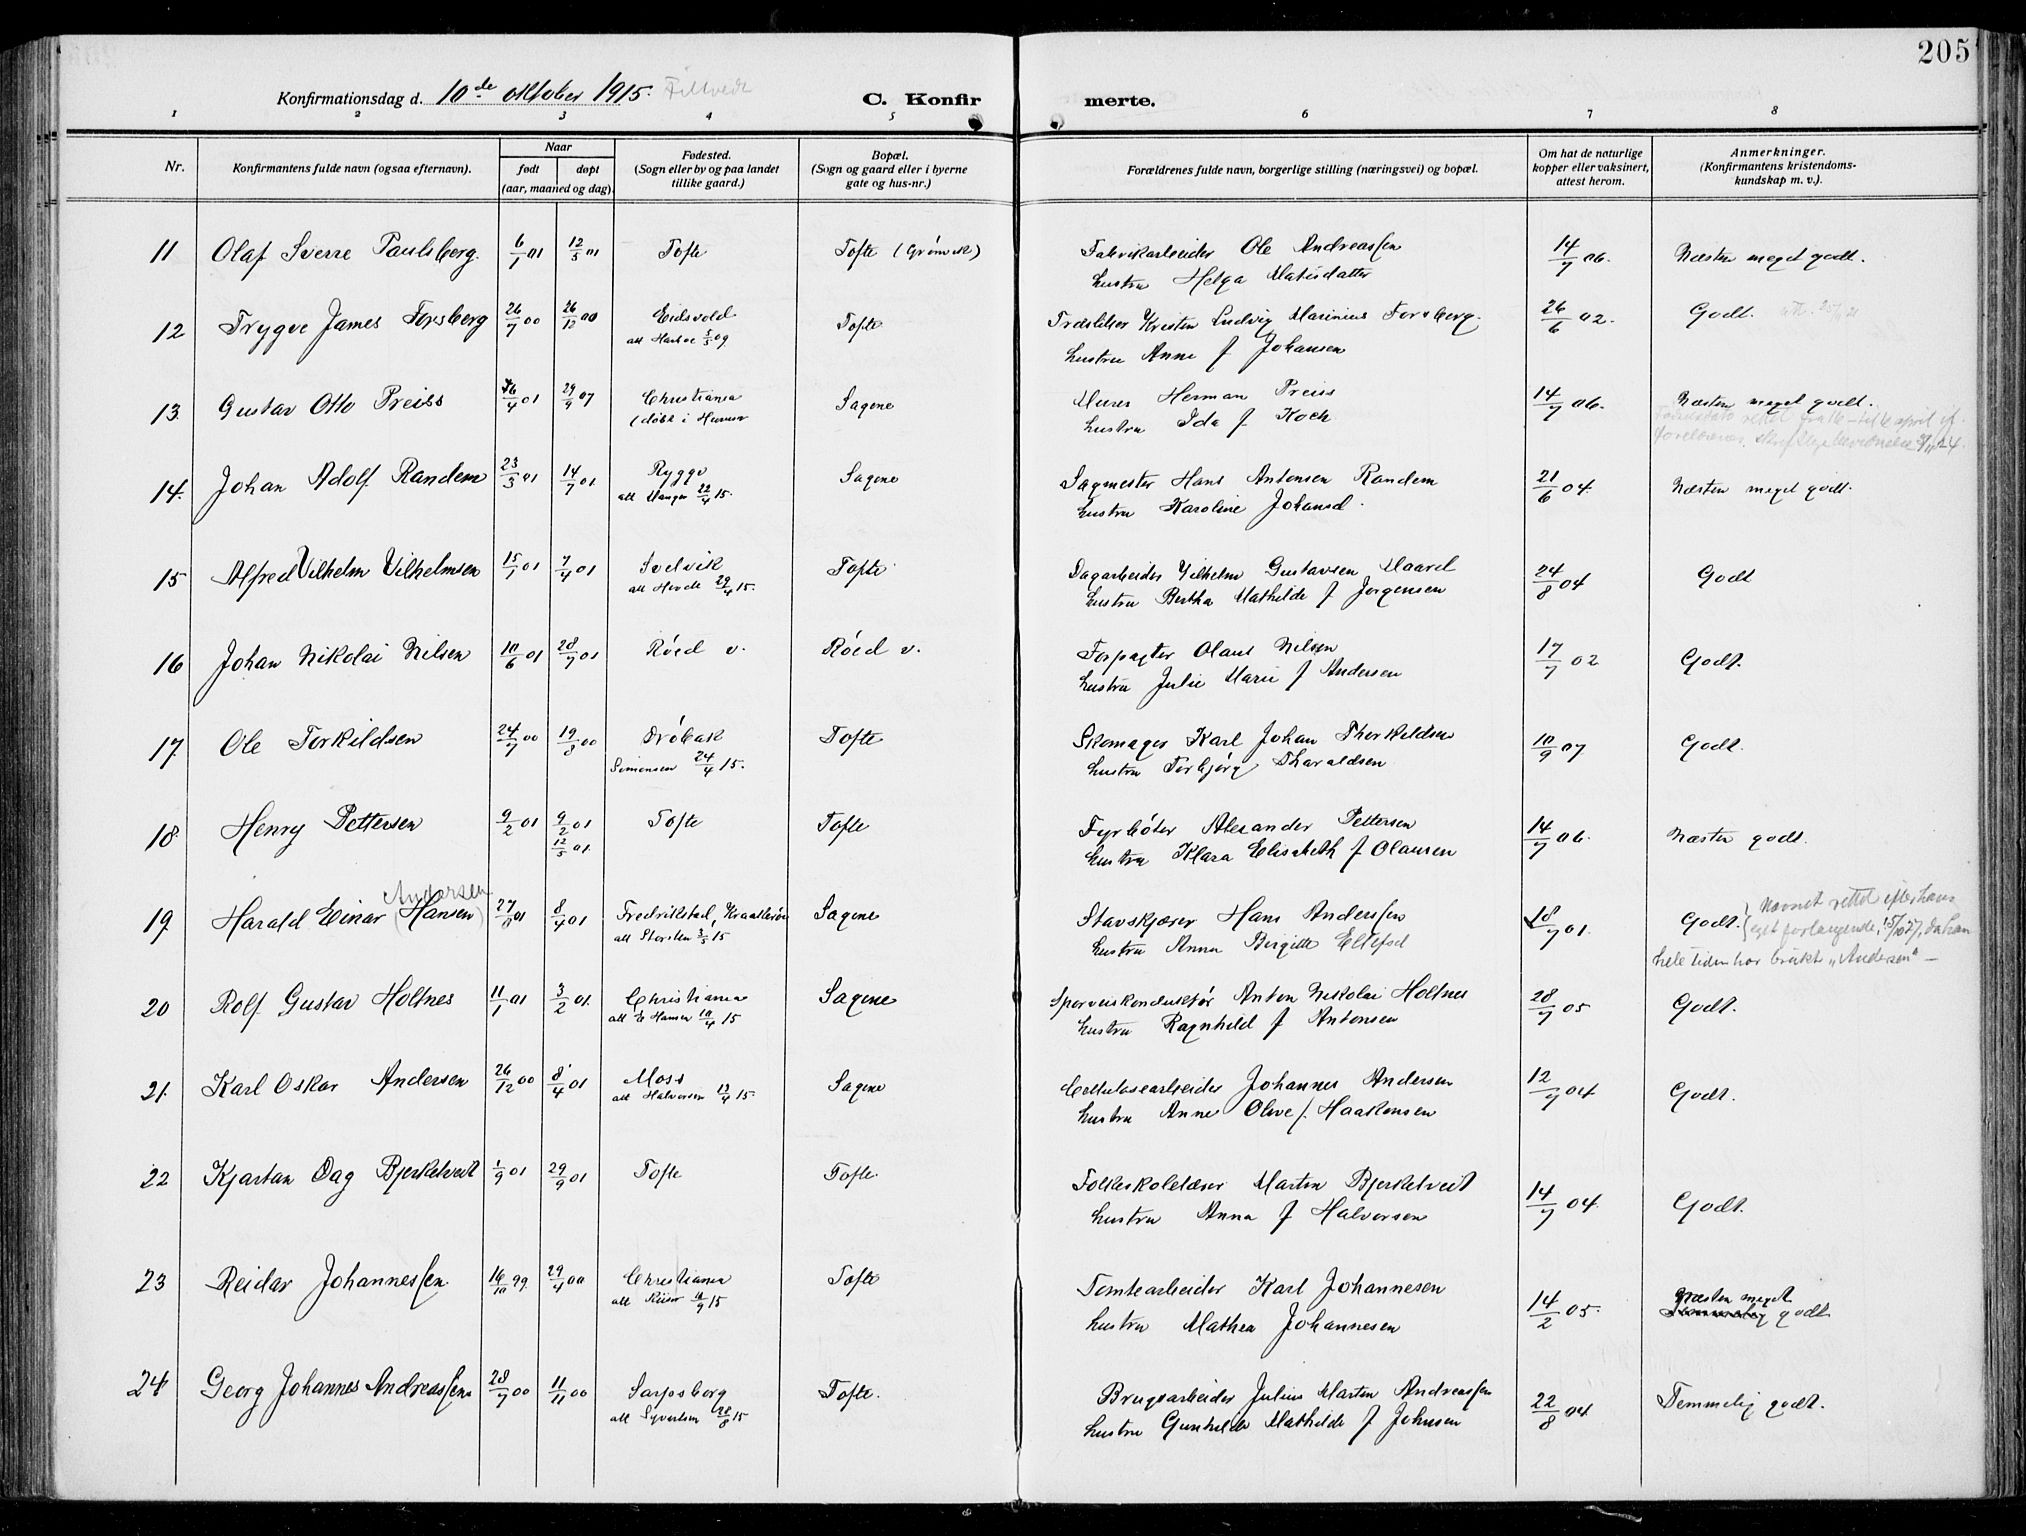 205
Konfirmationsdag d. 10de oktober 1915. Filtvedt
C. Konfirmerte.
1 2 3 4 5 6 7 8
Nr.
Konfirmantens fulde navn (ogsaa efternavn).
Naar
født døpt
(aar, maaned og dag).
Fødested.
(Sogn eller by og paa landet
tillike gaard.)
Bopæl.
(Sogn og gaard eller i byerne
gate og hus-nr.)
Forældrenes fulde navn, borgerlige stilling (næringsvei) og bopæl.
Om hat de naturlige
kopper eller vaksinert,
attest herom.
Anmerkninger.
(Konfirmantens kristendoms-
kundskap m. v.).
11 Olaf Sverre Paulsberg. 6/1 01 12/5 01 Tofte Tofte (Grønvik) Fabrikarbeider Ole Andreassen 14/7 06. Næsten meget godt.
hustru Helga Matisdatter
12 Trygve James Forsberg 26/7 00 26/12 00 Eidsvold Tofte Træsliber Kristen Ludvig Marinius Forsberg. 26/6 02. Godt.
att 5/5 09
hustru Anne f Johansen
13. Gustav Otto Preiss 16/4 01 29/9 07 Christiania Sagene Murer Herman Preiss 14/7 06. Næsten meget godt.
(døbt i Hurum hustru Ida f Koch
14. Johan Adolf Randem 23/3 01 14/7 01 Rygge Sagene Sagmester Hans Antonsen Randem 21/6 04. Næsten meget godt.
att Hauger 22/4 15. hustru Karoline Johansd.
15 Alfred Vilhelm Vilhelmsen 15/1 01 7/4 01 Svelvik Tofte Dagarbeider Vilhelm Gustavsen 24/8 04 Godt
att 29/4 15. hustru Bertha Mathilde f Jørgensen
16 Johan Nikolai Nilsen 10/6 01 28/7 01 Røed v. Røed v. Forpagter Olaus Nilsen 17/7 02 Godt.
hustru Julie Marie f Andersen
17. Ole Torkildsen 24/7 00 19/8 00 Drøbak Tofte Skomager Karl Johan Thorkildsen 10/9 07 Godt.
Simensen 24/4 15. hustru Torbjørg Tharaldsen
18. Henry Pettersen 9/2 01 9/2 01 Tofte Tofte Fyrbøter Alexander Pettersen 14/7 06. Næsten godt.
12/5 01. hustru Klara Elisabeth f Olausen
Andersen
19. Harald Einar (Hansen) 27/8 01 8/9 01 Fredrikstad, Kraakerøy Sagene Stavskjærer Hans Anderssen 18/7 01. Godt. { Navnet rettet efter hans
att Storsten 3/5 15 hustru Anna Birgitte Ellefsd eget forlangende, 15/10 27, da han
hele tiden har brukt „Andersen" —
20 Rolf Gustav Holtnes 11/1 01 3/2 01. Christiania Sagene Sporveiskonduktør Anton Nikolai Holtnes 28/7 05 Godt.
att E Hansen 10/4 15 hustru Ragnhild f Antonsen
21. Karl Oskar Andersen 26/12 00 8/4 01 Moss Sagene Cellulosearbeider Johannes Andersen 12/7 04 Godt.
att Halvorsen 13/4 15. hustru Anne Olive f. Haakensen
22 Kjartan Dag Bjerketveit 1/9 01 29/9 01 Tofte Tofte. Folkeskolelærer Martin Bjerketveit 14/7 04. Godt.
hustru Anna f Halvorsen
23 Reidar Johannessen. 16/10 99. 29/4 00 Christiania Tofte Tomtearbeider Karl Johannesen 14/2 05. Næsten meget
att Riiser 11/9 15 hustru Mathea Johannesen Temmelig godt
24 Georg Johannes Andreassen 28/7 00 11/11 00 Sarpsborg Tofte. Brugsarbeider Julius Martin Andreassen 22/8 04 Temmelig godt.
att Syvertsen 28/8 15 hustru Gunhilde Mathilde f Johnsen